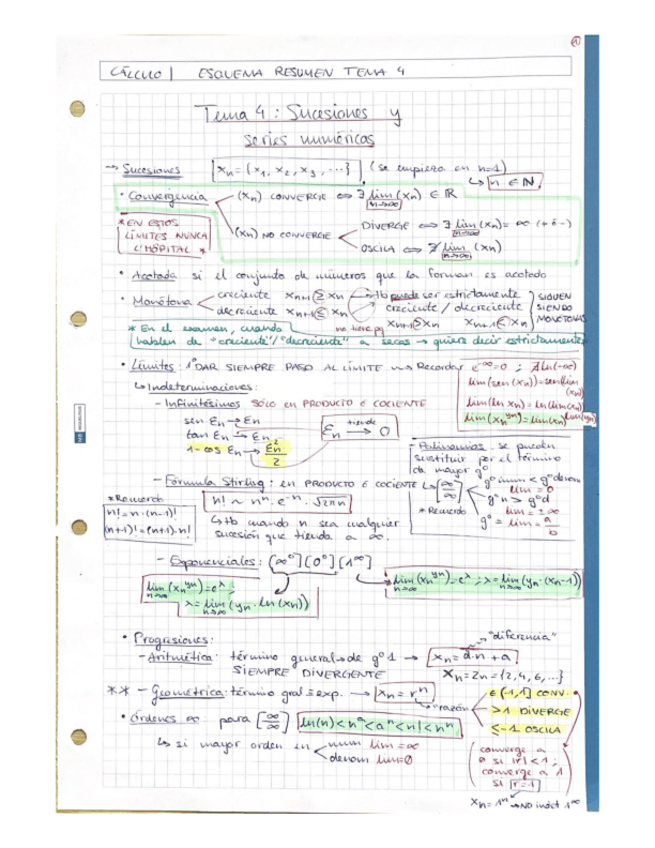 CÁLCULO | ESQUEMA RESUMEN TEMA 4
Tema 4: Sucesiones y
series numéricas
→ Sucesiones xₙ = {x₁, x₂, x₃, ...} (se empieza en n=1)
↳ n ∈ ℕ
· Convergencia (xₙ) CONVERGE ⇔ ∃ lim (xₙ) ∈ ℝ
n→∞
* EN ESTOS LÍMITES NUNCA L'HÔPITAL *
(xₙ) NO CONVERGE
DIVERGE ⇔ ∃ lim (xₙ) = ∞ (+ ó -)
n→∞
OSCILA ⇔ ∄ lim (xₙ)
n→∞
· Acotada si el conjunto de números que la forman es acotado
· Monótona creciente xₙ₊₁ ≥ xₙ
decreciente xₙ₊₁ ≤ xₙ
tb puede ser estrictamente
creciente / decreciente
xₙ₊₁ > xₙ xₙ₊₁ < xₙ
SIGUEN SIENDO MONÓTONAS
no tiene pq
* En el examen, cuando
hablen de "creciente"/"decreciente" a secas → quiere decir estrictamente
· Límites: 1º DAR SIEMPRE PASO AL LÍMITE → Recordar
e^-∞ = 0 ; ∄ ln(-∞)
lim(sen(xₙ)) = sen(lim(xₙ))
lim(ln xₙ) = ln(lim(xₙ))
lim(xₙ^yₙ) = lim(xₙ)^lim(yₙ)
↳ Indeterminaciones:
- Infinitésimos SÓLO en PRODUCTO o COCIENTE
sen Eₙ → Eₙ
tan Eₙ → Eₙ
1-cos Eₙ → Eₙ²/2
Eₙ tiende → 0
- Polinomios: se pueden
sustituir por el término
de mayor gº
[∞/∞]
gº num < gº denom
lim = 0
gº n > gº d
lim = ±∞
gº = lim = a/b
* Recuerdo
- Fórmula Stirling: en PRODUCTO o COCIENTE
n! ~ nⁿ · e⁻ⁿ · √2πn
↳ tb cuando n sea cualquier
sucesión que tienda a ∞.
* Recuerdo
n! = n·(n-1)!
(n+1)! = (n+1)·n!
- Exponenciales: [∞⁰] [0⁰] [1^∞]
lim (xₙ^yₙ) = e^λ ;
n→∞
λ = lim (yₙ · ln(xₙ))
n→∞
lim (xₙ^yₙ) = e^λ ; λ = lim (yₙ·(xₙ-1))
n→∞ n→∞
· Progresiones:
- Aritmética: término general → de gº 1 → xₙ = d·n + a
"diferencia"
SIEMPRE DIVERGENTE
xₙ = 2n = {2, 4, 6, ...}
** - Geométrica: término gral = exp. → xₙ = rⁿ
"razón"
∈ (-1,1] CONV.
>1 DIVERGE
≤-1 OSCILA
· Órdenes ∞ para [∞/∞] ln(n) < n^a < aⁿ < n! < nⁿ
↳ si mayor orden en
num lim = ∞
denom lim = 0
converge a
0 si |r|<1;
converge a 1
si r=1
xₙ = 1ⁿ → NO indet 1^∞